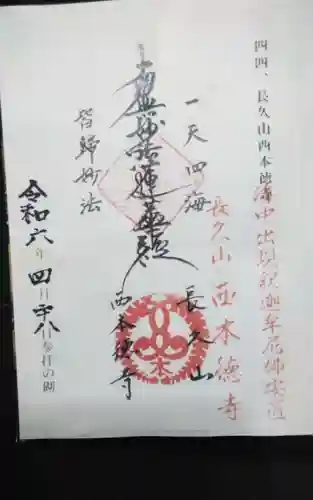 四四、長久山西本徳寺
海中出現釈迦牟尼佛安置
長久山 西本徳寺
一天四海
長久山
南無妙法蓮華経
西本徳寺
皆歸妙法
令和六年四月十八日参拝の網